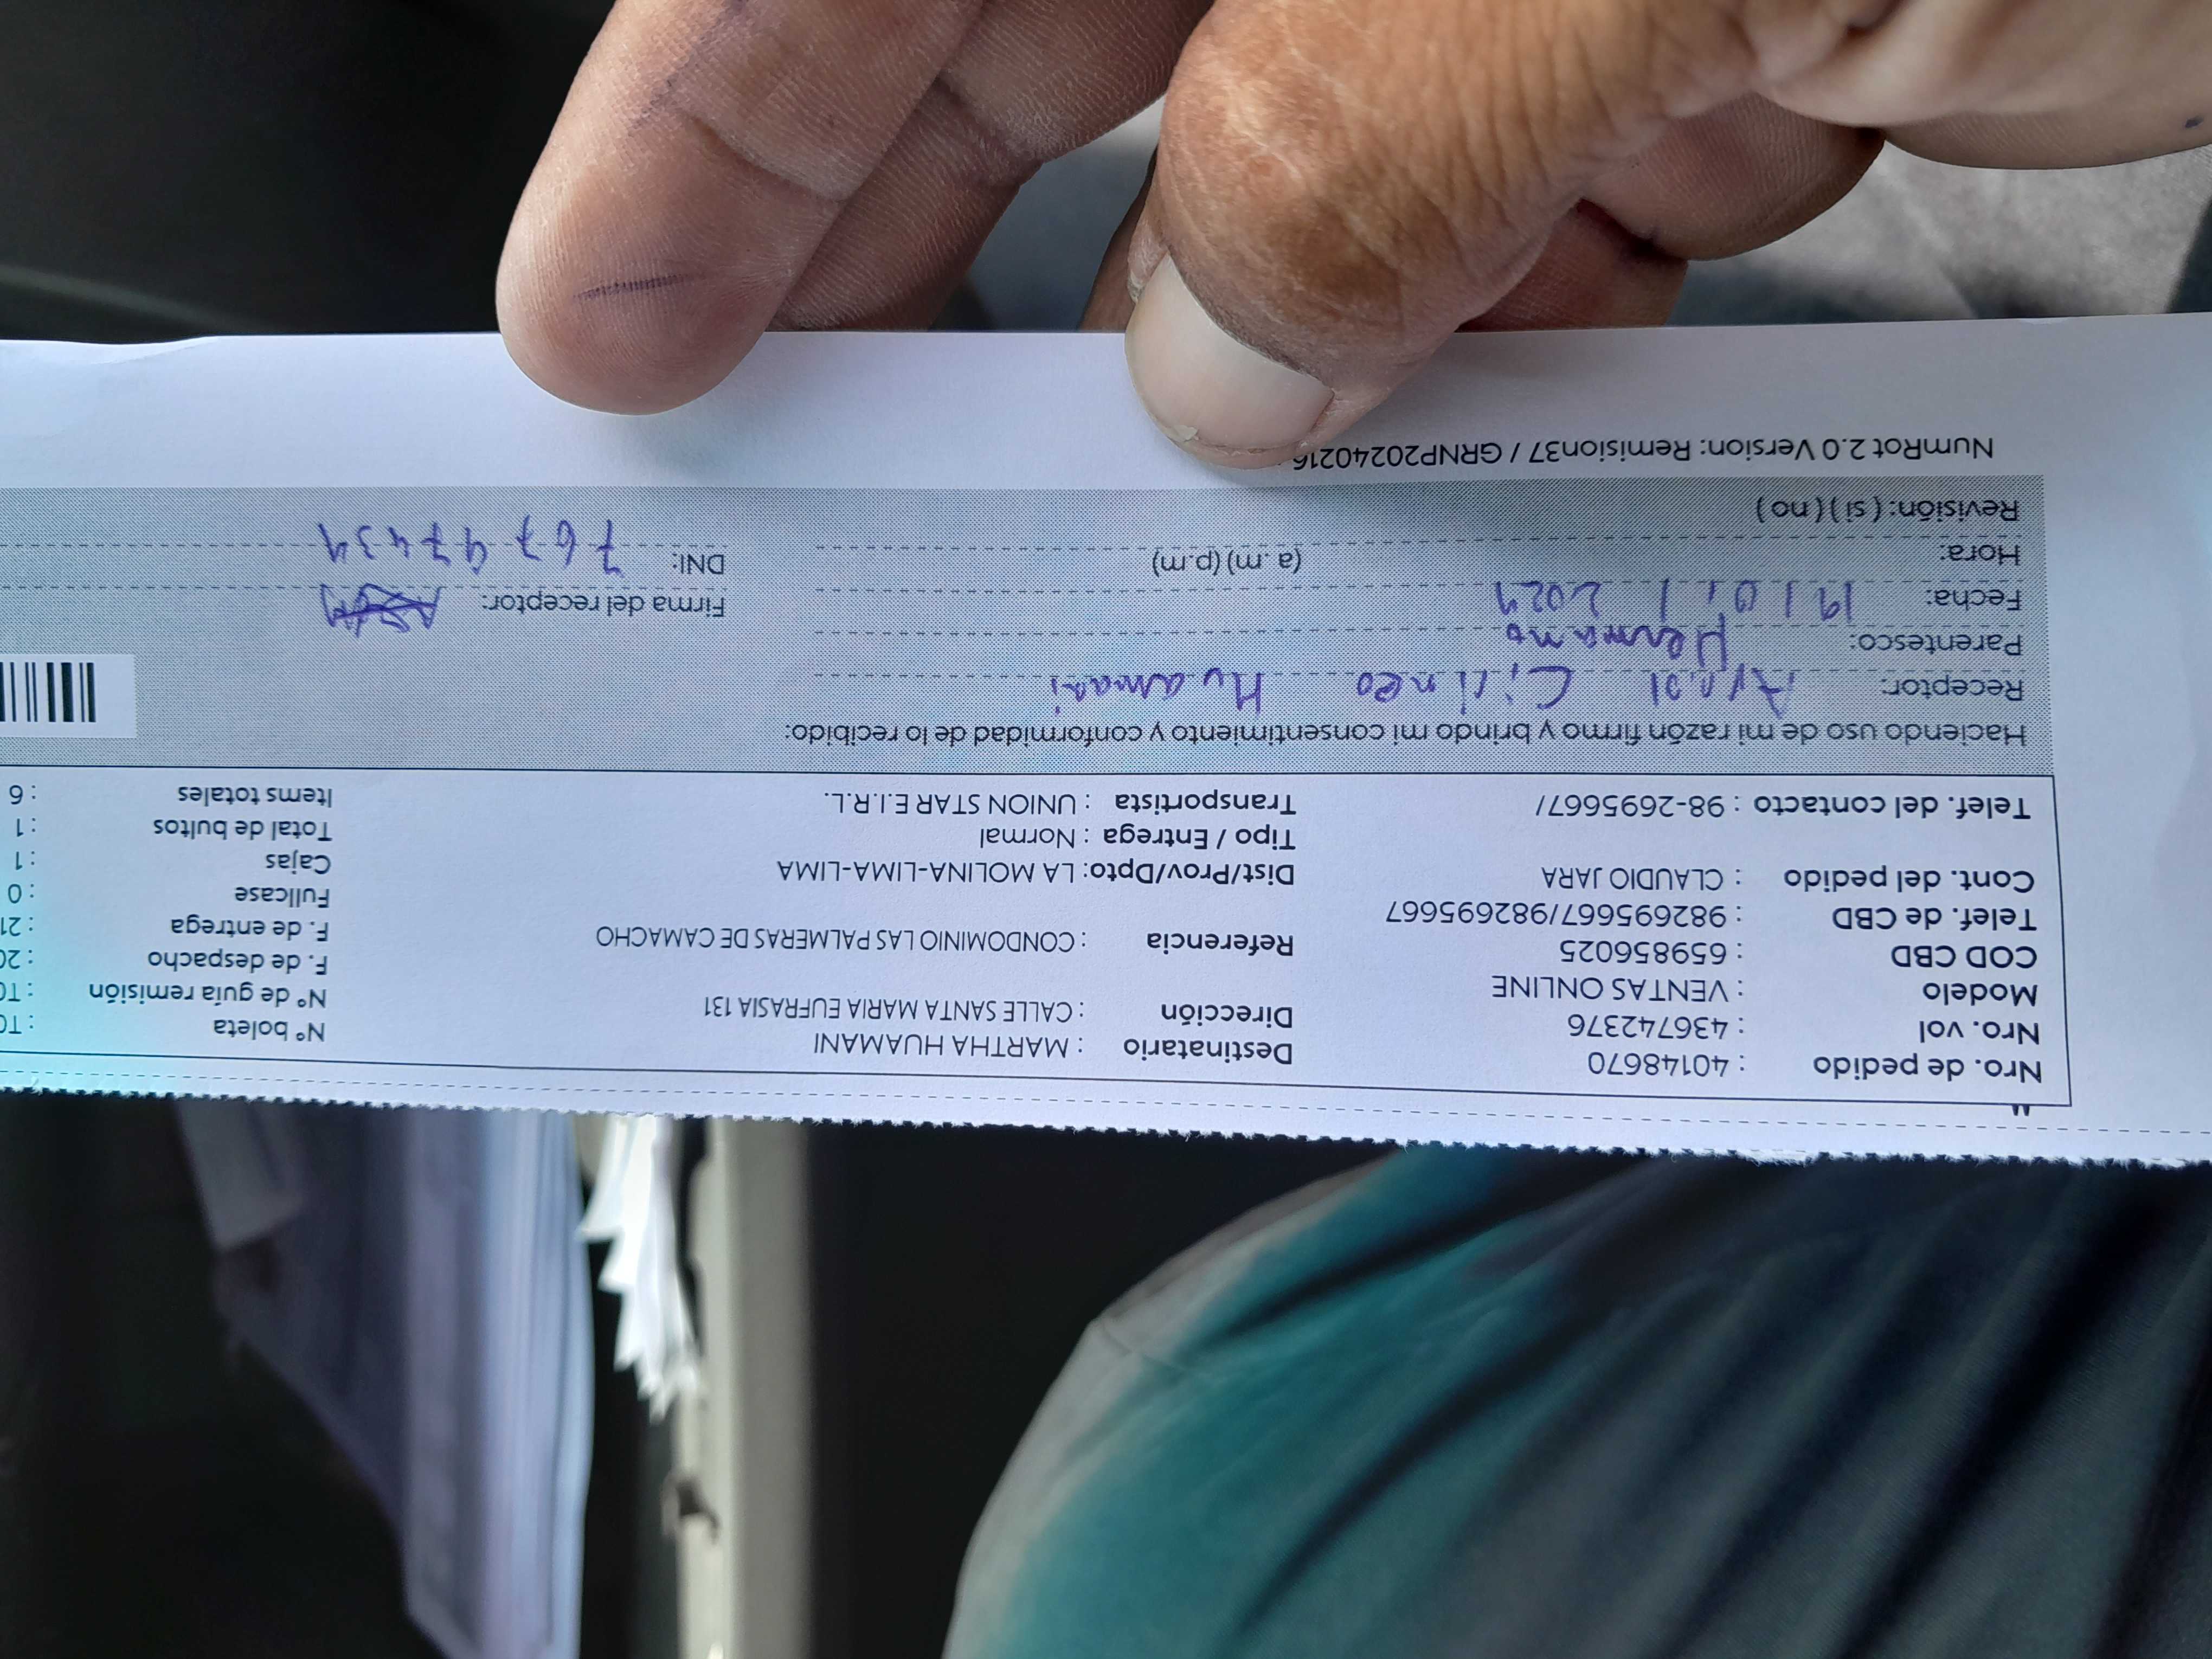 Nro. de pedido : 40148670
Nro. vol : 436742376
Modelo : VENTAS ONLINE
COD CBD : 659856025
Telef. de CBD : 982695667/982695667
Cont. del pedido : CLAUDIO JARA
Telef. del contacto : 98-2695667/
Destinatario : MARTHA HUAMANI
Dirección : CALLE SANTA MARIA EUFRASIA 131
Referencia : CONDOMINIO LAS PALMERAS DE CAMACHO
Dist/Prov/Dpto: LA MOLINA-LIMA-LIMA
Tipo / Entrega : Normal
Transportista : UNION STAR E.I.R.L.
N° boleta : T0
N° de guía remisión : T0
F. de despacho : 20
F. de entrega : 21
Fullcase : 0
Cajas : 1
Total de bultos : 1
Items totales : 6
Haciendo uso de mi razón firmo y brindo mi consentimiento y conformidad de lo recibido:
Receptor: Huamani
Parentesco: Hermano
Fecha: 2024
Hora: (a. m) (p.m)
Revisión: ( si ) ( no )
Firma del receptor:
DNI: 76747434
NumRot 2.0 Version: Remision37 / GRNP20240216